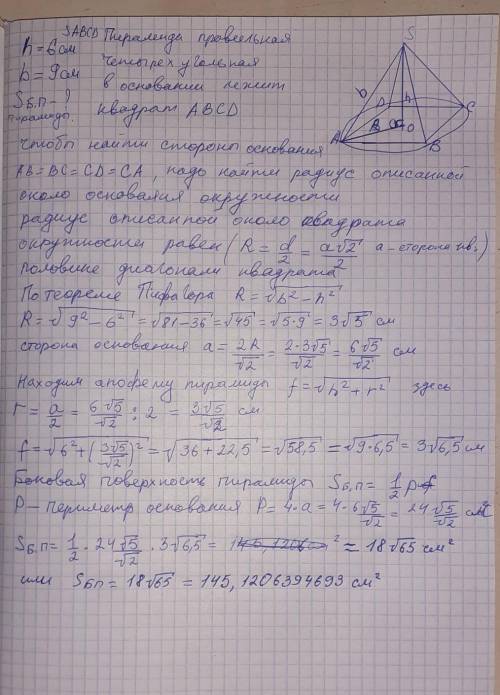 SABCD Пирамида правельная
h = 6 см четырех угольная
b = 9 см в основании лежит
Sб.п - ? квадрат ABCD
пирамиды
чтобы найти стороны основания
AB = BC = CD = CA, надо найти радиус описанной
около основания окружности
радиус описанной около квадрата
окружности равен (R = d/2 = a√2/2 a - сторона кв.)
половине диагонали квадрата
По теореме Пифагора R = √(b² - h²)
R = √(9² - 6²) = √(81 - 36) = √45 = √(5·9) = 3√5 см
сторона основания a = 2R/√2 = 2·3√5/√2 = 6√5/√2 см
Находим апофему пирамиды f = √(h² + r²) здесь
r = a/2 = 6√5/√2 : 2 = 3√5/√2 см
f = √(6² + (3√5/√2)²) = √(36 + 22,5) = √58,5 = √(9·6,5) = 3√6,5 см
Боковая поверхность пирамиды Sб.п = 1/2 p·f
P - периметр основания P = 4·a = 4·6√5/√2 = 24√5/√2 см
Sб.п = 1/2 · 24√5/√2 · 3√6,5 = ² = 18√65 см²
или Sбп = 18√65 = 145,1206394693 см²
S
b
h
D
C
O
A
B